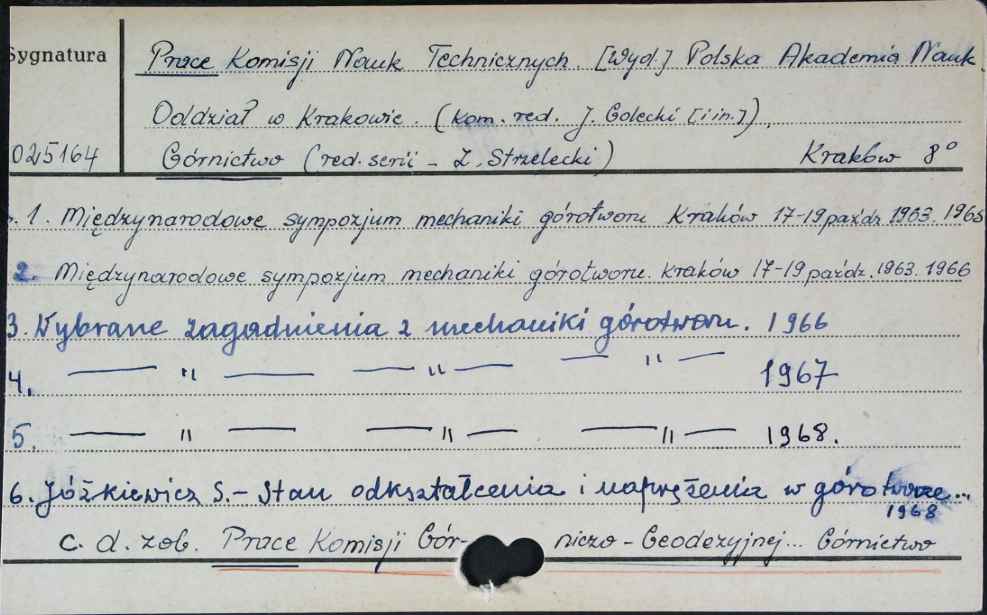 Sygnatura
Prace Komisji Nauk Technicznych. [Wyd.] Polska Akademia Nauk.
Oddział w Krakowie. (kom. red. J. Golecki [i in.]),
025164 Górnictwo (red. serii - Z. Strzelecki) Kraków 8°
1. Międzynarodowe sympozjum mechaniki górotworu Kraków 17-19 paźdz 1963. 1965
2. Międzynarodowe sympozjum mechaniki górotworu. Kraków 17-19 paźdz. 1963. 1966
3. Wybrane zagadnienia z mechaniki górotworu. 1966
4. — " — — " — — " — 1967
5. — " — — " — — " — 1968.
6. Jóźkiewicz S. - Stan odkształcenia i naprężenia w górotworze...
1968
c. d. zob. Prace Komisji Gór- niczo - Geodezyjnej... Górnictwo